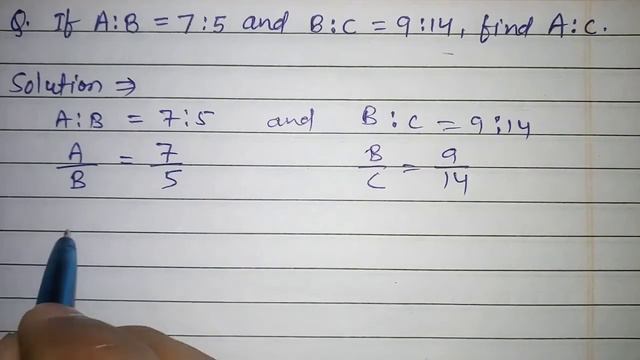 Q. If A:B = 7:5 and B:C = 9:14, find A:C.
Solution ⇒
A:B = 7:5 and B:C = 9:14
A/B = 7/5 B/C = 9/14